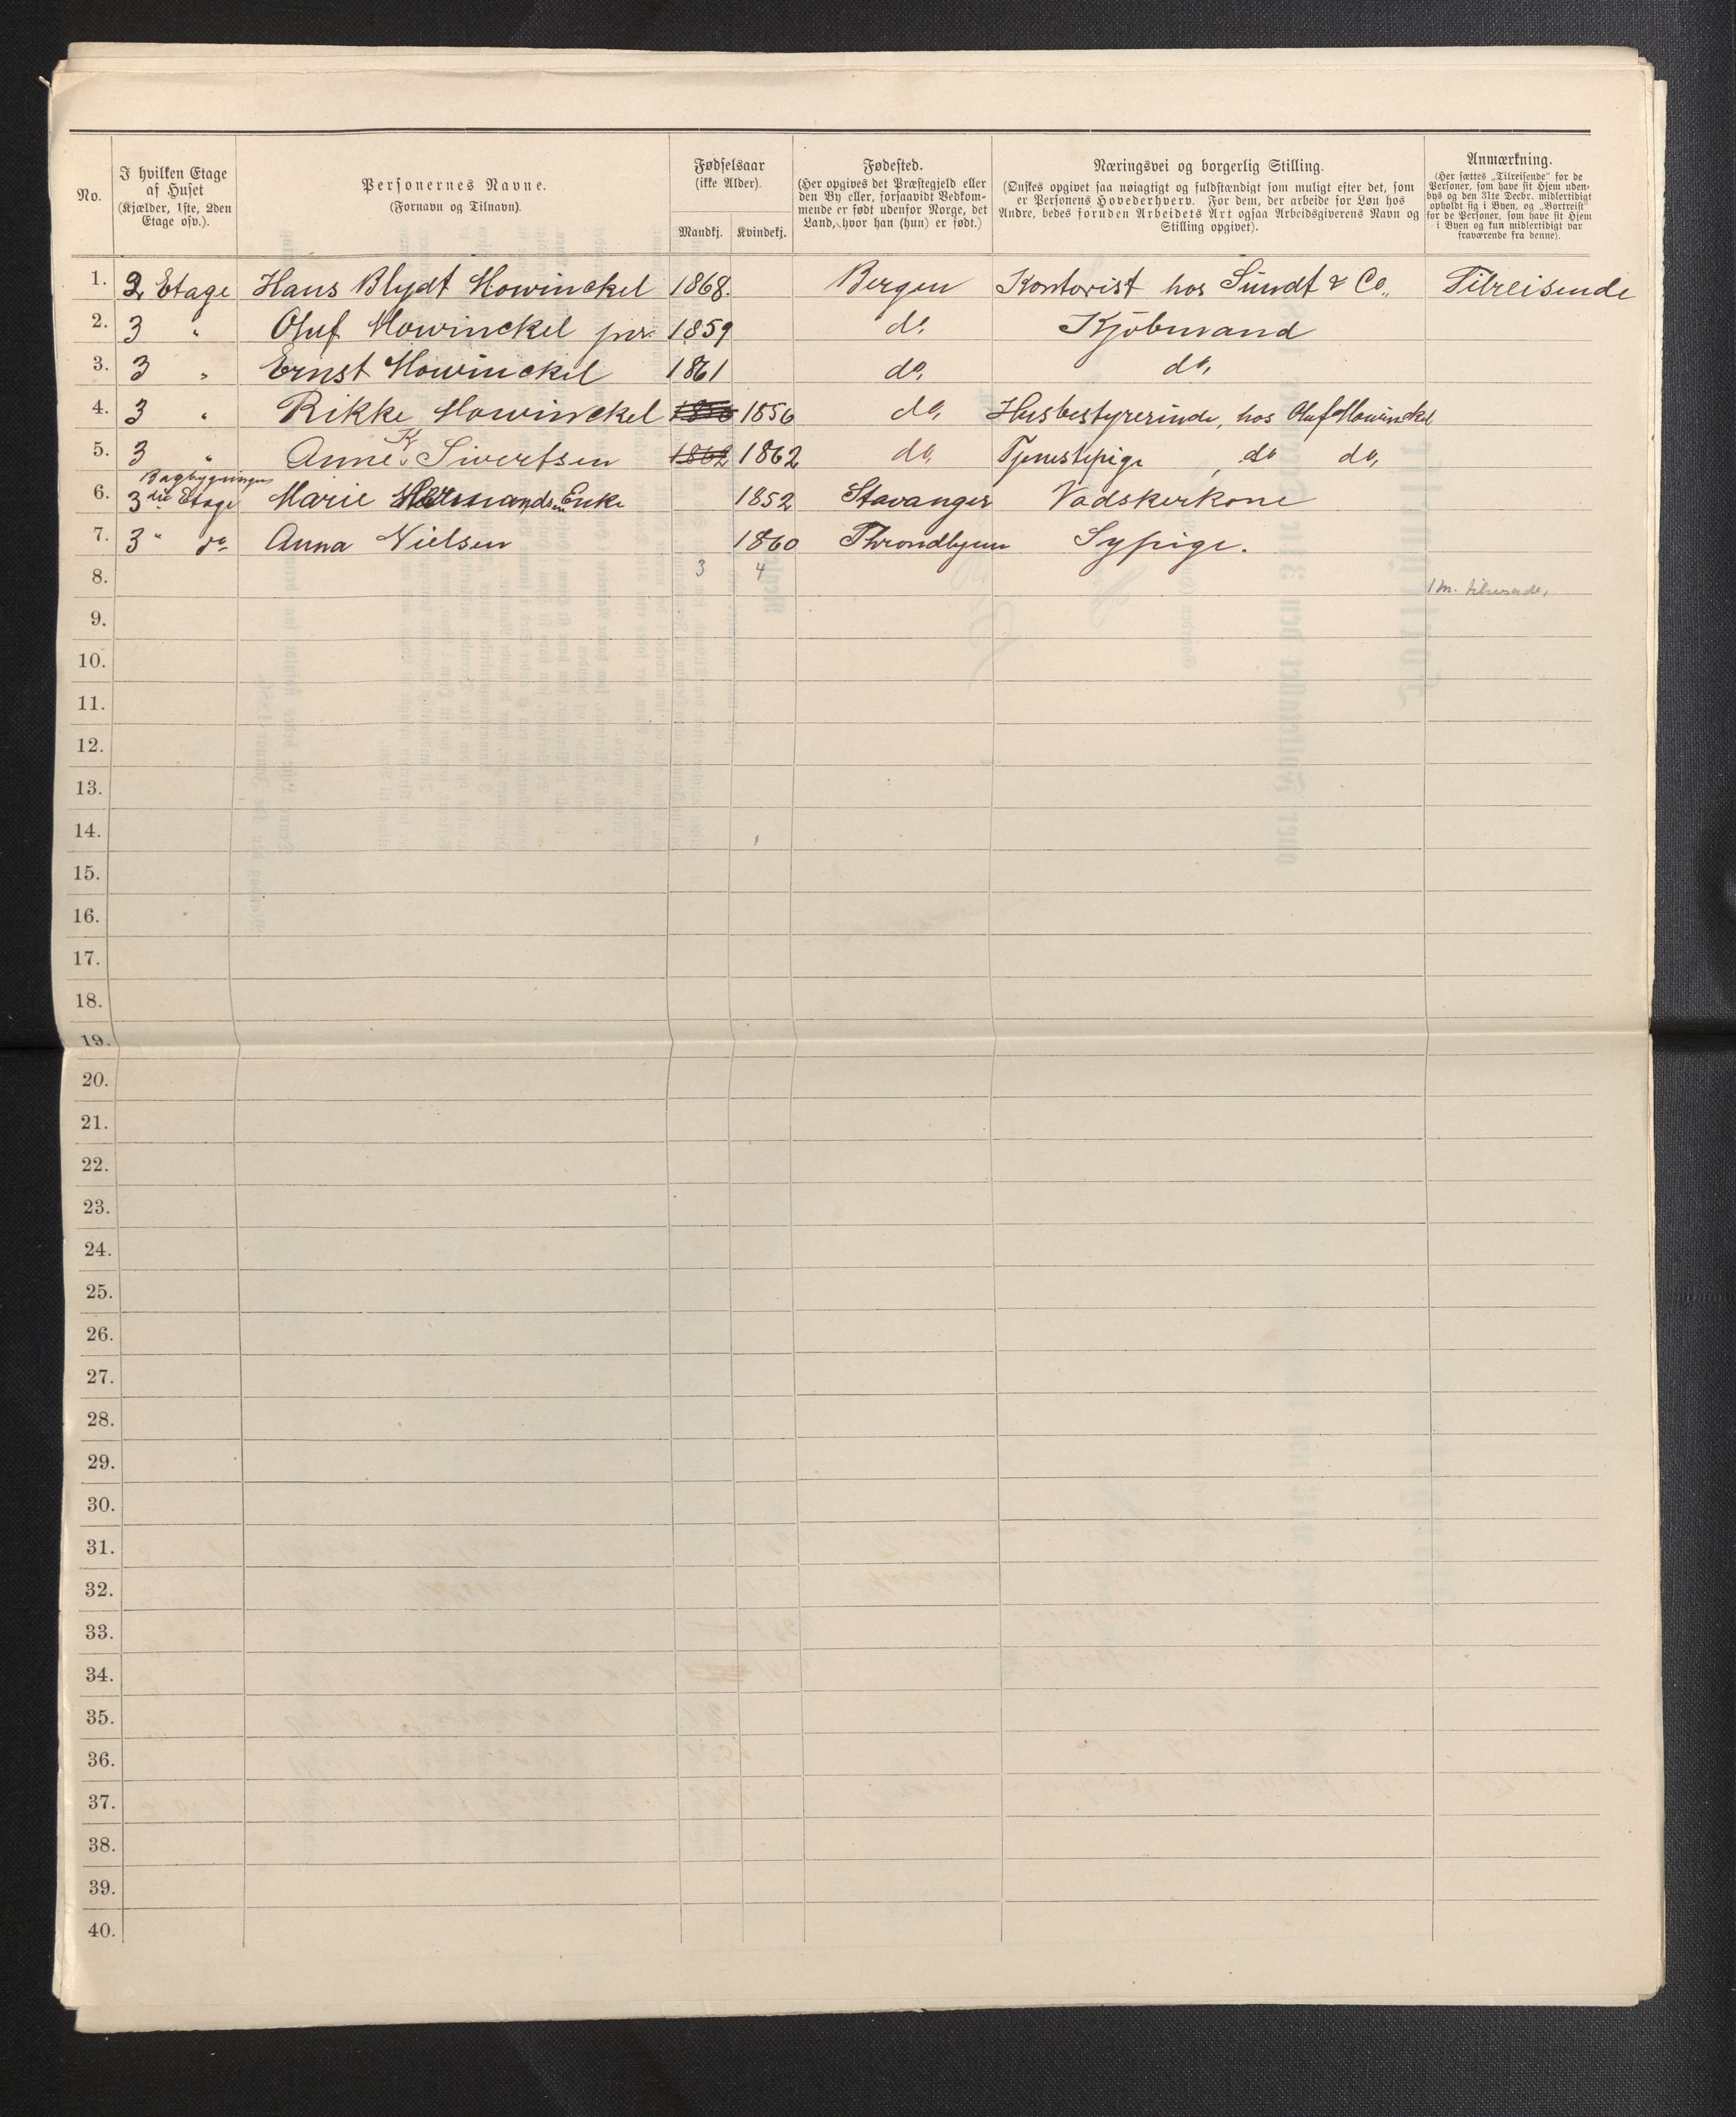 No.
I hvilken Etage
af Huset
(Kjælder, 1ste, 2den
Etage osv.).
Personernes Navne.
(Fornavn og Tilnavn).
Fødselsaar
(ikke Alder).
Mandkj. Kvindekj.
Fødested.
(Her opgives det Præstegjeld eller
den By eller, forsaavidt Vedkom-
mende er født udenfor Norge, det
Land, hvor han (hun) er født.)
Næringsvei og borgerlig Stilling.
(Ønskes opgivet saa nøiagtigt og fuldstændigt som muligt efter det, som
er Personens Hovederhverv. For dem, der arbeide for Løn hos
Andre, bedes foruden Arbeidets Art ogsaa Arbeidsgiverens Navn og
Stilling opgivet).
Anmærkning.
(Her sættes „Tilreisende“ for de
Personer, som have sit Hjem uden-
bys og den 31te Decbr. midlertidigt
opholdt sig i Byen, og „Bortreist“
for de Personer, som have sit Hjem
i Byen og kun midlertidigt var
fraværende fra denne).
1. 2 Etage Hans Blydt Mowinckel 1868. Bergen Kontorist hos Sundt & Co. Tilreisende
2. 3 " Oluf Mowinckel jnr. 1859 do, Kjöbmand
3. 3 " Ernst Mowinckel 1861 do, do,
4. 3 " Rikke Mowinckel 1856 1856 do, Husbestyrerinde, hos Oluf Mowinckel
5. 3 " Anne K. Sivertsen 1862 1862 do, Tjenestepige, do do,
Bagbygningen
6. 3die Etage Marie Enke 1852 Stavanger Vadskerkone
7. 3 " do Anna Nielsen 1860 Throndhjem Sypige.
8. 3 4 1 m. tilreisende,
9.
10.
11.
12.
13.
14.
15.
16.
17.
18.
19.
20.
21.
22.
23.
24.
25.
26.
27.
28.
29.
30.
31.
32.
33.
34.
35.
36.
37.
38.
39.
40.